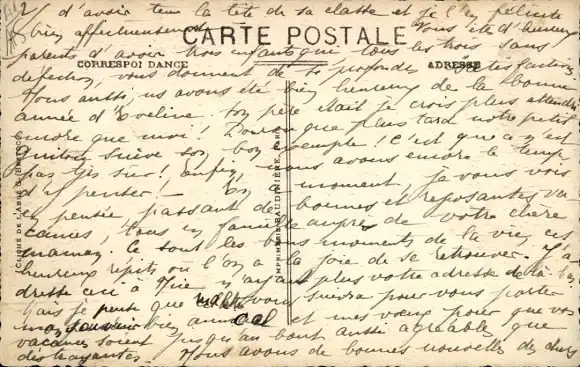 2/ d'avoir tenu la tête de sa classe et je l'en félicite
bien affectueusement. Vous êtes d'heureux
CARTE POSTALE
parents d'avoir trois enfants qui tous les trois sans
CORRESPONDANCE
ADRESSE
défection, vous donnent de si profondes satisfactions
Nous aussi, ns avons été bien heureux de la bonne
année d'Eveline son père était je crois plus attendri
encore que moi! Pourvu que plus tard notre petit
suive son bon exemple! C'est que ce n'est
pas très sûr! enfin, nous avons encore le temps
d'y penser! En ce moment, je vous vois
en pensée, passant de bonnes et reposantes va-
cances, tous en famille auprès de votre chère
maman. Ce sont les bons moments de la vie, ces
heureux répits où l'on a la joie de se retrouver. J'a-
dresse ceci à n'ayant plus votre adresse de là-bas
mais je pense que vous suivra pour vous porter
mon souvenir bien amical et mes vœux pour que vos
vacances soient jusqu'au bout aussi agréables que
distrayantes. Nous avons de bonnes nouvelles des chers
IMPRIMERIE BAUDINIÈRE, PARIS
CLICHÉ DE L'ABBÉ G.